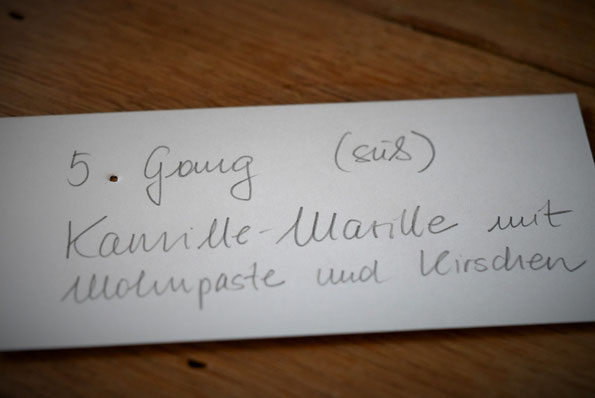 5. Gang (süß)
Kamille-Marille mit
Mohnpaste und Kirschen